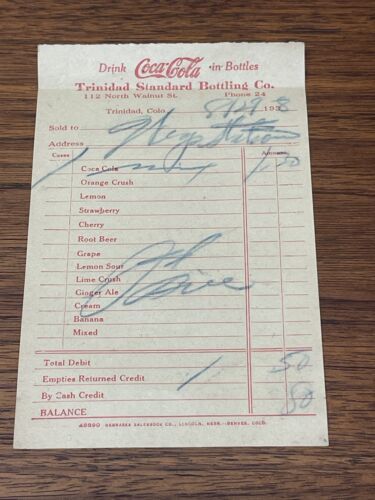 Drink Coca-Cola in Bottles
Trinidad Standard Bottling Co.
112 North Walnut St. Phone 24
Trinidad, Colo. 193
Sold to
Address
Cases Amount
1 Coca Cola 1.50
Orange Crush
Lemon
Strawberry
Cherry
Root Beer
Grape
Lemon Sour
Lime Crush
Ginger Ale
Cream
Banana
Mixed
Total Debit 50
Empties Returned Credit 1
By Cash Credit
BALANCE
49890 NEBRASKA SALESBOOK CO., LINCOLN, NEBR.-DENVER, COLO.